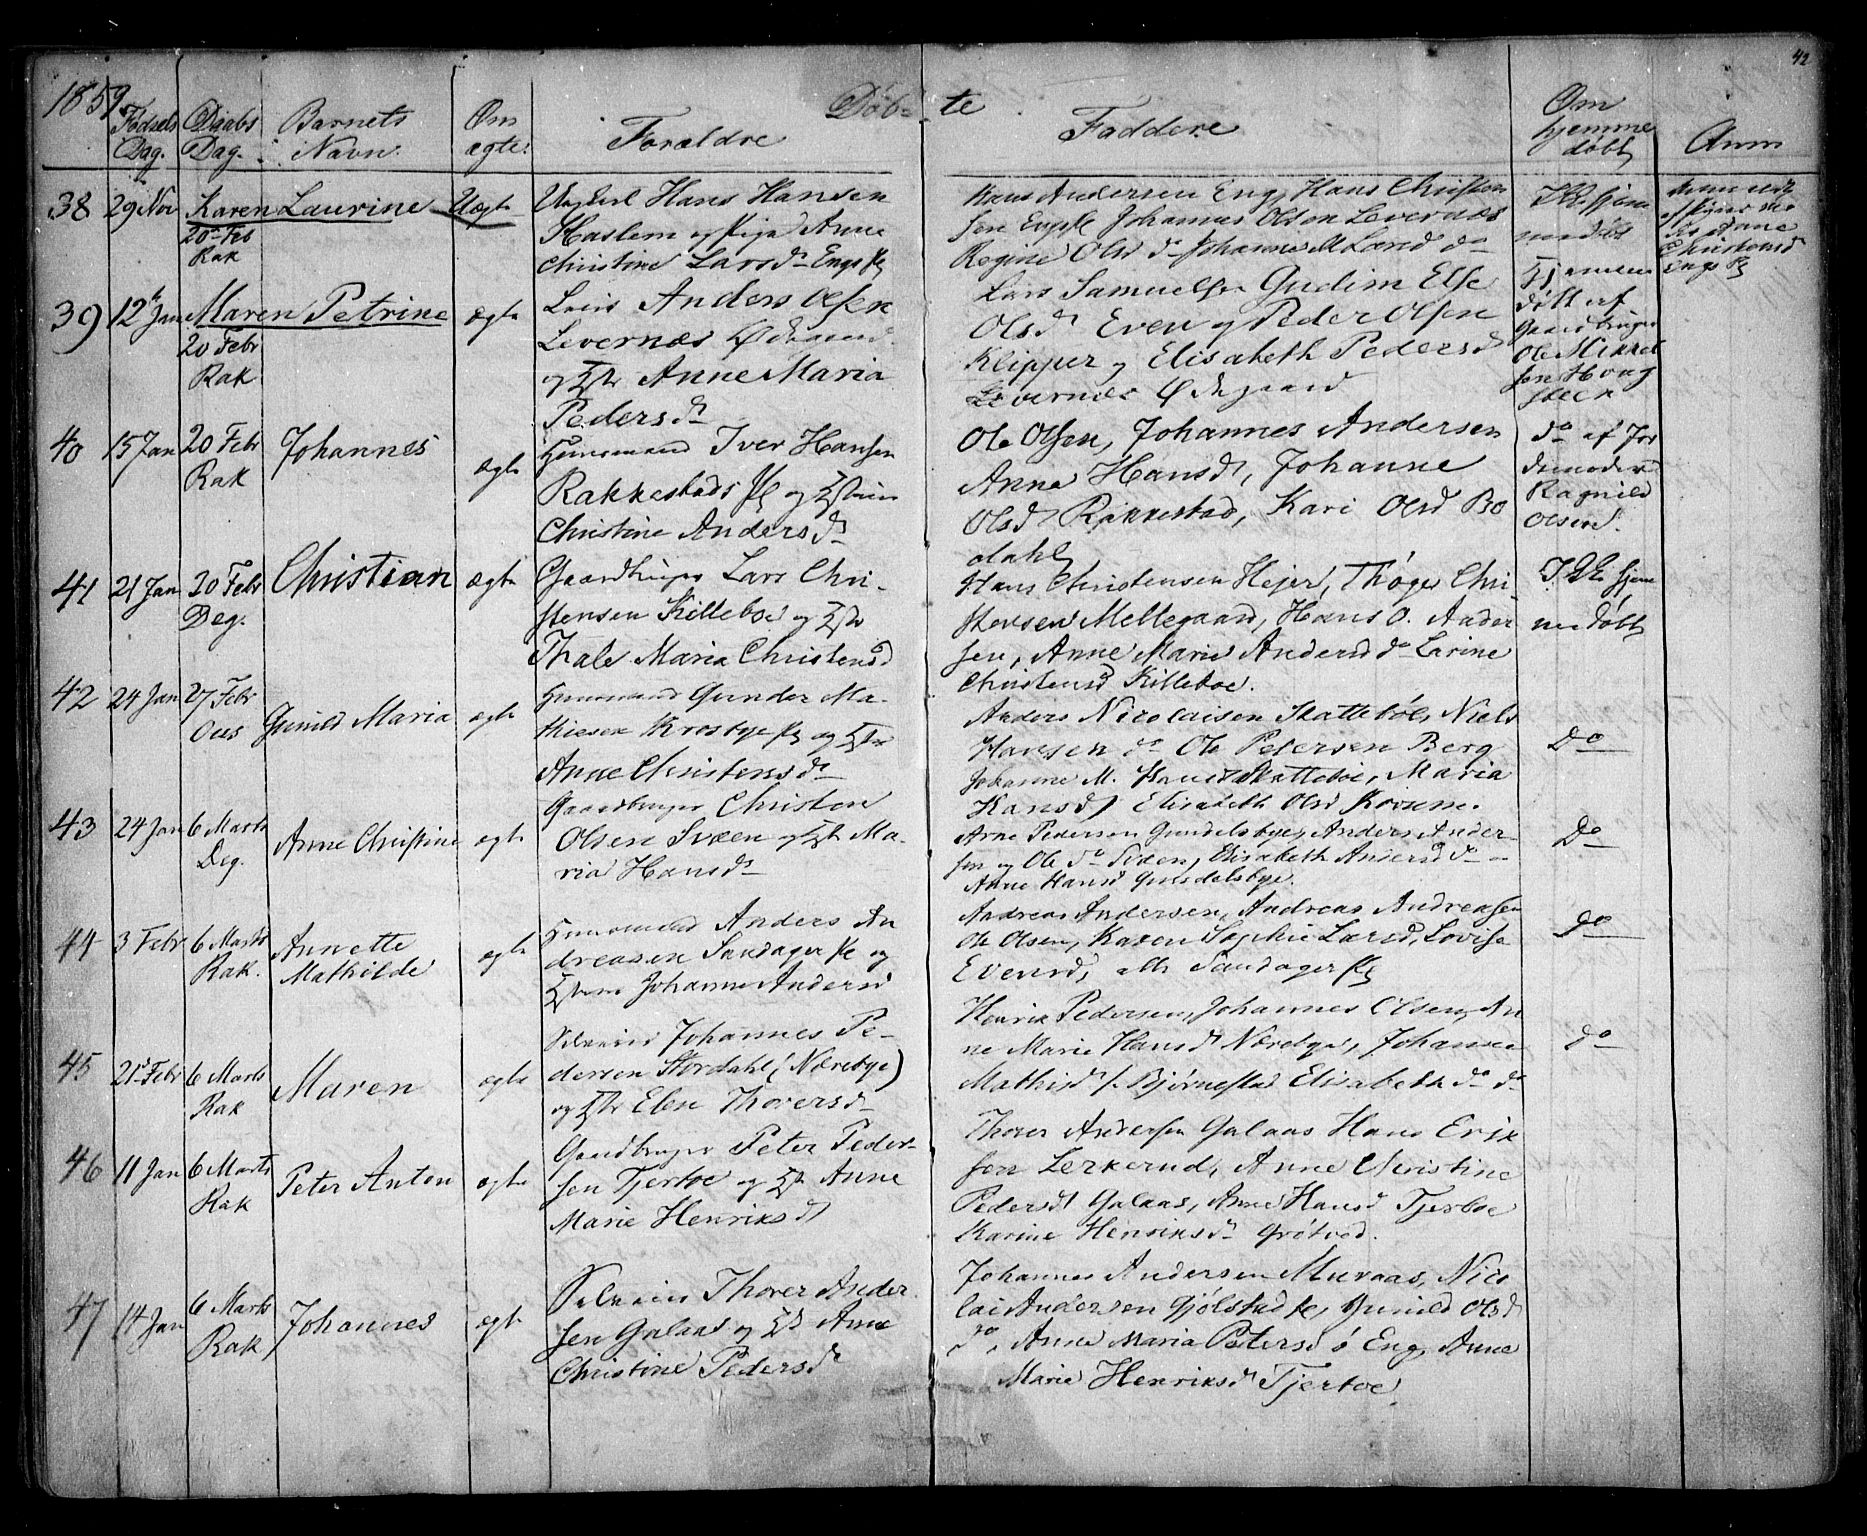 42
1859 Døb- te
Fødsels Dag. Daabs Dag. Barnets Navn. Om ægte. Forældre Faddere Om hjemme døbt Anm
38 29 Nov Karen Laurine Uægte
20 Feb
Rak
Ungkarl Hans Hansen
Haslem og Pige Anne
Christine Larsd Engs
Hans Andersen Eng, Hans Christen
sen Eng Johannes Olsen Levernæs
Regine Olsd do Johanne M. Larsd do
Ikke hjem
medøbt
Anne
Christensd
39 12 Jan Maren Petrine ægte
20 Febr
Rak
Anders Olsen
Levernæs Ødegaard
og Anne Maria
Pedersd
Lars Samuelsen Gudim Else
Olsd Even og Peder Olsen
Klipper og Elisabeth Pedersd
Levernæs Ødegaard
Hjemme
døbt af
Gaardbruger
Ole Mikkel
sen Houg
steen
40 15 Jan 20 Febr Johannes ægte
Rak
Huusmand Iver Hansen
Rakkestads og
Christine Andersd
Ole Olsen, Johannes Andersen
Anne Hansd, Johanne
Olsd Rakkestad, Kari Olsd Bo
dahl
do af Jor
demoder
Ragnild
Olsen.
41 21 Jan 20 Febr Christian ægte
Deg.
Gaardbruger Lars Chri-
stensen Killeboe og
Thale Maria Christensd
Hans Christensen Hejer, Thøger Chri-
stensen Mellegaard, Hans O. Ander
sen, Anne Marie Andersd do Larine
Christensd Killeboe.
Ikke hjem
medøbt
42 24 Jan 27 Febr Gunild Maria ægte
Ous
Huusmand Gunder Ma-
thiesen Krosbye og
Anne Christensd
Anders Nicolaisen Skattebøl, Niels
Hansen do Ole Petersen Berg
Johanne M. Hansd Skatteboe, Maria
Hansd, Elisabeth Olsd
Do
43 24 Jan 6 Marts Anne Christine ægte
Deg.
Gaardbruger Christen
Olsen Svæen og Ma-
ria Hansd
Arne Pedersen Gundelsbye, Anders Ander-
sen og Ole do Svæen, Elisabeth Andersd do
Anne Hansd Gundelsbye.
Do
44 3 Febr 6 Marts Annette ægte
Rak. Mathilde
Huusmand Anders An
dreasen Sandager og
Johanne Andersd
Andreas Andersen, Andreas Andreasen
Ole Olsen, Karen Sophie Larsd, Lovise
Evensd, alle Sandager
Do
45 21 Febr 6 Marts Maren ægte
Rak
Selveier Johannes Pe-
dersen Stordahl (Nærebye)
og Elen Thoersd
Henrik Pedersen, Johannes Olsen, An
ne Marie Hansd Nærebye, Johanne
Mathisd Bjørnestad Elisabeth do do
Do
46 11 Jan 6 Marts Peter Anton ægte
Rak
Gaardbruger Peter Peder-
sen Tjerboe og Anne
Marie Henriksd
Thorer Andersen Galaas Hans Erik
sen Lerkerud, Anne Christine
Pedersd Galaas, Anne Hansd Tjerboe
Karine Henriksd Grøtved.
47 14 Jan 6 Marts Johannes ægte
Rak
Selveier Thorer Ander
sen Galaas og Anne
Christine Pedersd
Johannes Andersen Muraas, Nico
lai Andersen Gjølstad, Gunild Olsd
do, Anne Maria Petersd Eng, Anne
Marie Henriksd Tjerboe.